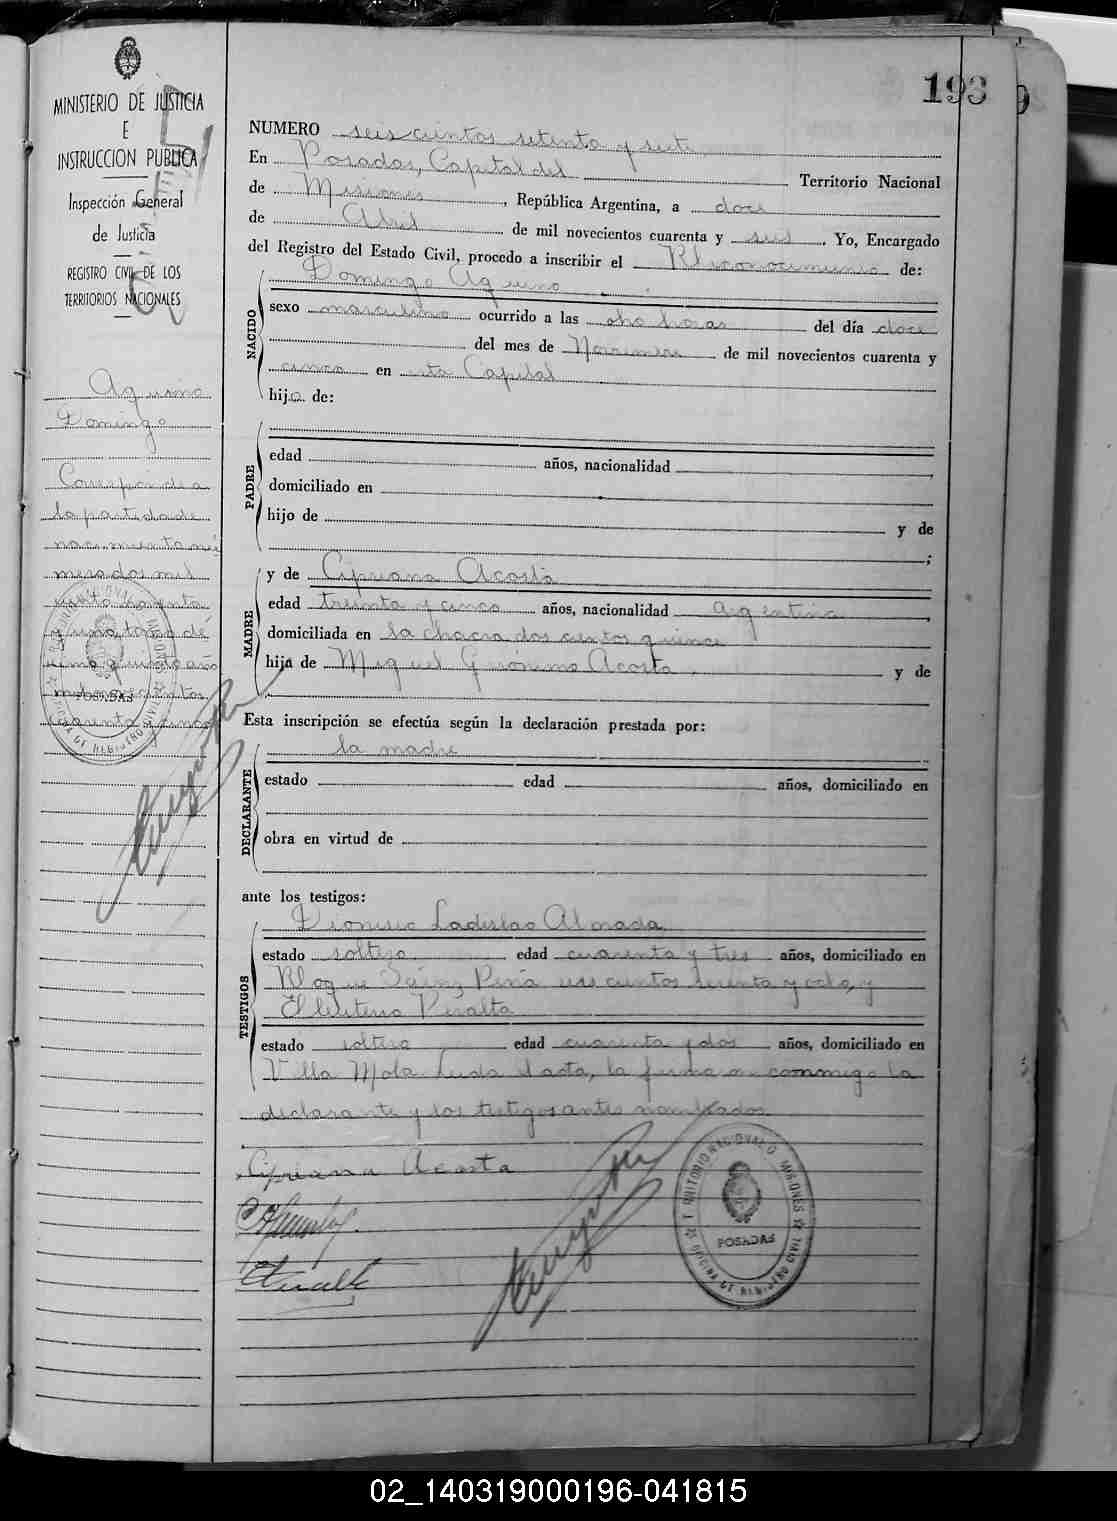 193
MINISTERIO DE JUSTICIA
E
INSTRUCCION PUBLICA
Inspección General
de Justicia
REGISTRO CIVIL DE LOS
TERRITORIOS NACIONALES
Aquino
Domingo
Corresponde a
la partida de
nacimiento nú
mero dos mil
y uno, tomo dé
cimo quinto año
mil novecientos
cuarenta y cinco
NUMERO seiscientos setenta y siete
En Posadas, Capital del Territorio Nacional
de Misiones, República Argentina, a doce
de Abril de mil novecientos cuarenta y seis. Yo, Encargado
del Registro del Estado Civil, procedo a inscribir el Reconocimiento de:
NACIDO
Domingo Aquino
sexo masculino ocurrido a las ocho horas del día doce
del mes de Noviembre de mil novecientos cuarenta y
cinco en esta Capital
hijo de:
PADRE
edad años, nacionalidad
domiciliado en
hijo de y de
;
MADRE
y de Cipriana Acosta
edad treinta y cinco años, nacionalidad argentina,
domiciliada en la chacra doscientos quince
hija de Miguel Gerónimo Acosta y de
Esta inscripción se efectúa según la declaración prestada por:
DECLARANTE
la madre
estado edad años, domiciliado en
obra en virtud de
ante los testigos:
TESTIGOS
Dionisio Ladislao Almada
estado soltero edad cuarenta y tres años, domiciliado en
Roque Sáenz Peña seiscientos setenta y ocho, y
Eleuterio Peralta
estado soltero edad cuarenta y dos años, domiciliado en
Villa Mola. Leída el acta, la firman conmigo la
declarante y los testigos antes nombrados
Cipriana Acosta
TERRITORIO NACIONAL D. MISIONES
OFICINA DE REGISTRO CIVIL
POSADAS
02_140319000196-041815